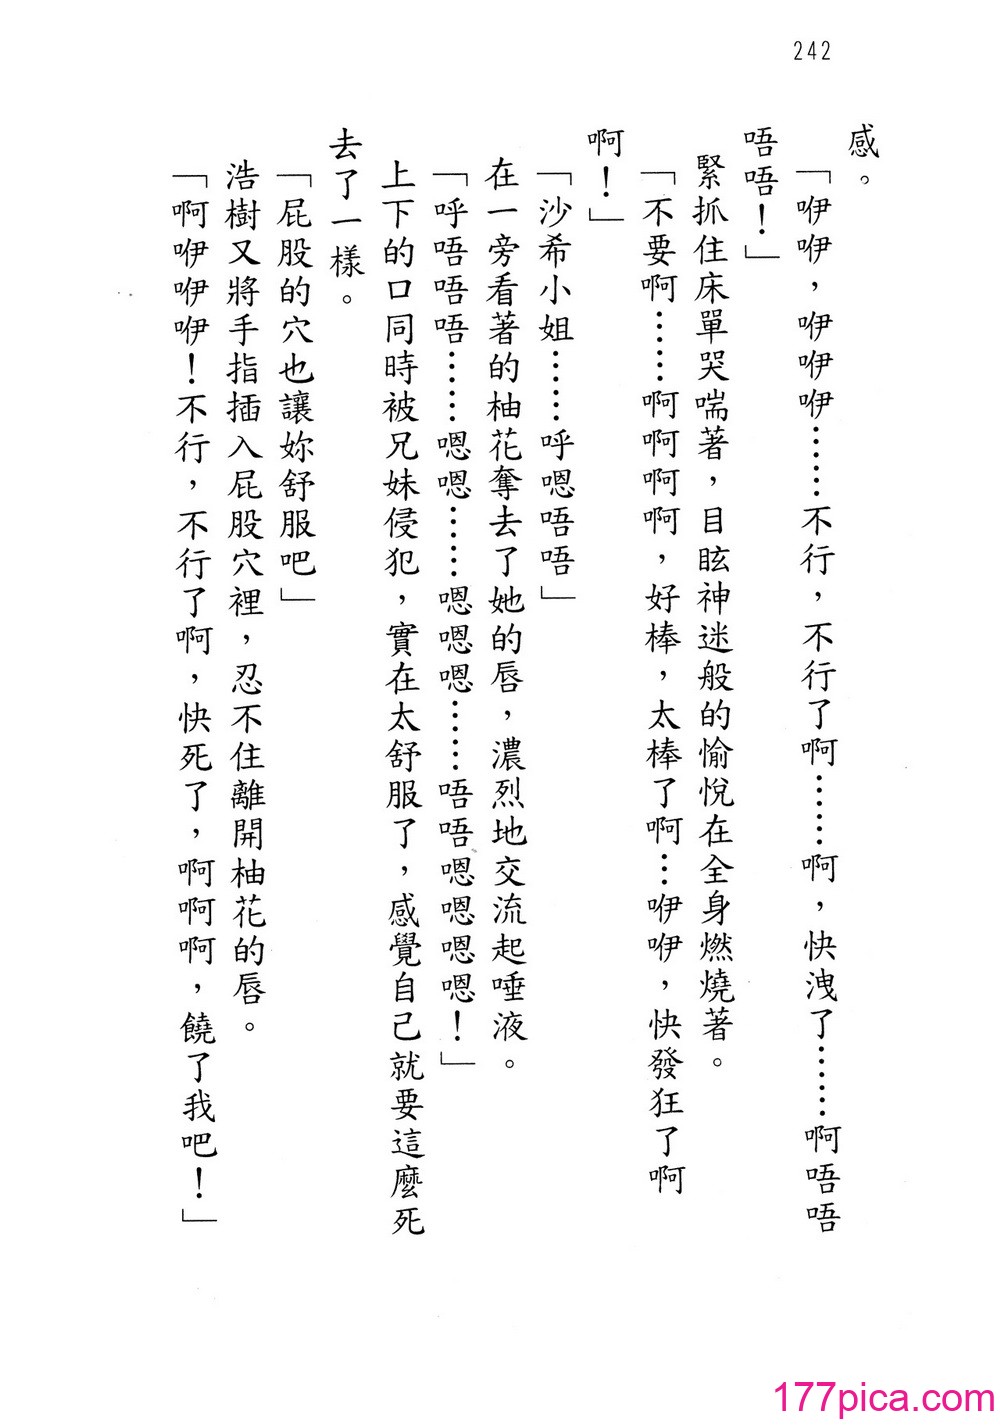 242
感。
「咿咿，咿咿咿……不行，不行了啊……啊，快洩了……啊唔唔
唔唔！」
緊抓住床單哭喘著，目眩神迷般的愉悅在全身燃燒著。
「不要啊……啊啊啊啊，好棒，太棒了啊…咿咿，快發狂了啊
啊！」
「沙希小姐……呼嗯唔唔」
在一旁看著的柚花奪去了她的唇，濃烈地交流起唾液。
「呼唔唔唔……嗯嗯……嗯嗯嗯……唔唔嗯嗯嗯嗯！」
上下的口同時被兄妹侵犯，實在太舒服了，感覺自己就要這麼死
去了一樣。
「屁股的穴也讓妳舒服吧」
浩樹又將手指插入屁股穴裡，忍不住離開柚花的唇。
「啊咿咿咿！不行，不行了啊，快死了，啊啊啊，饒了我吧！」
177pica.com